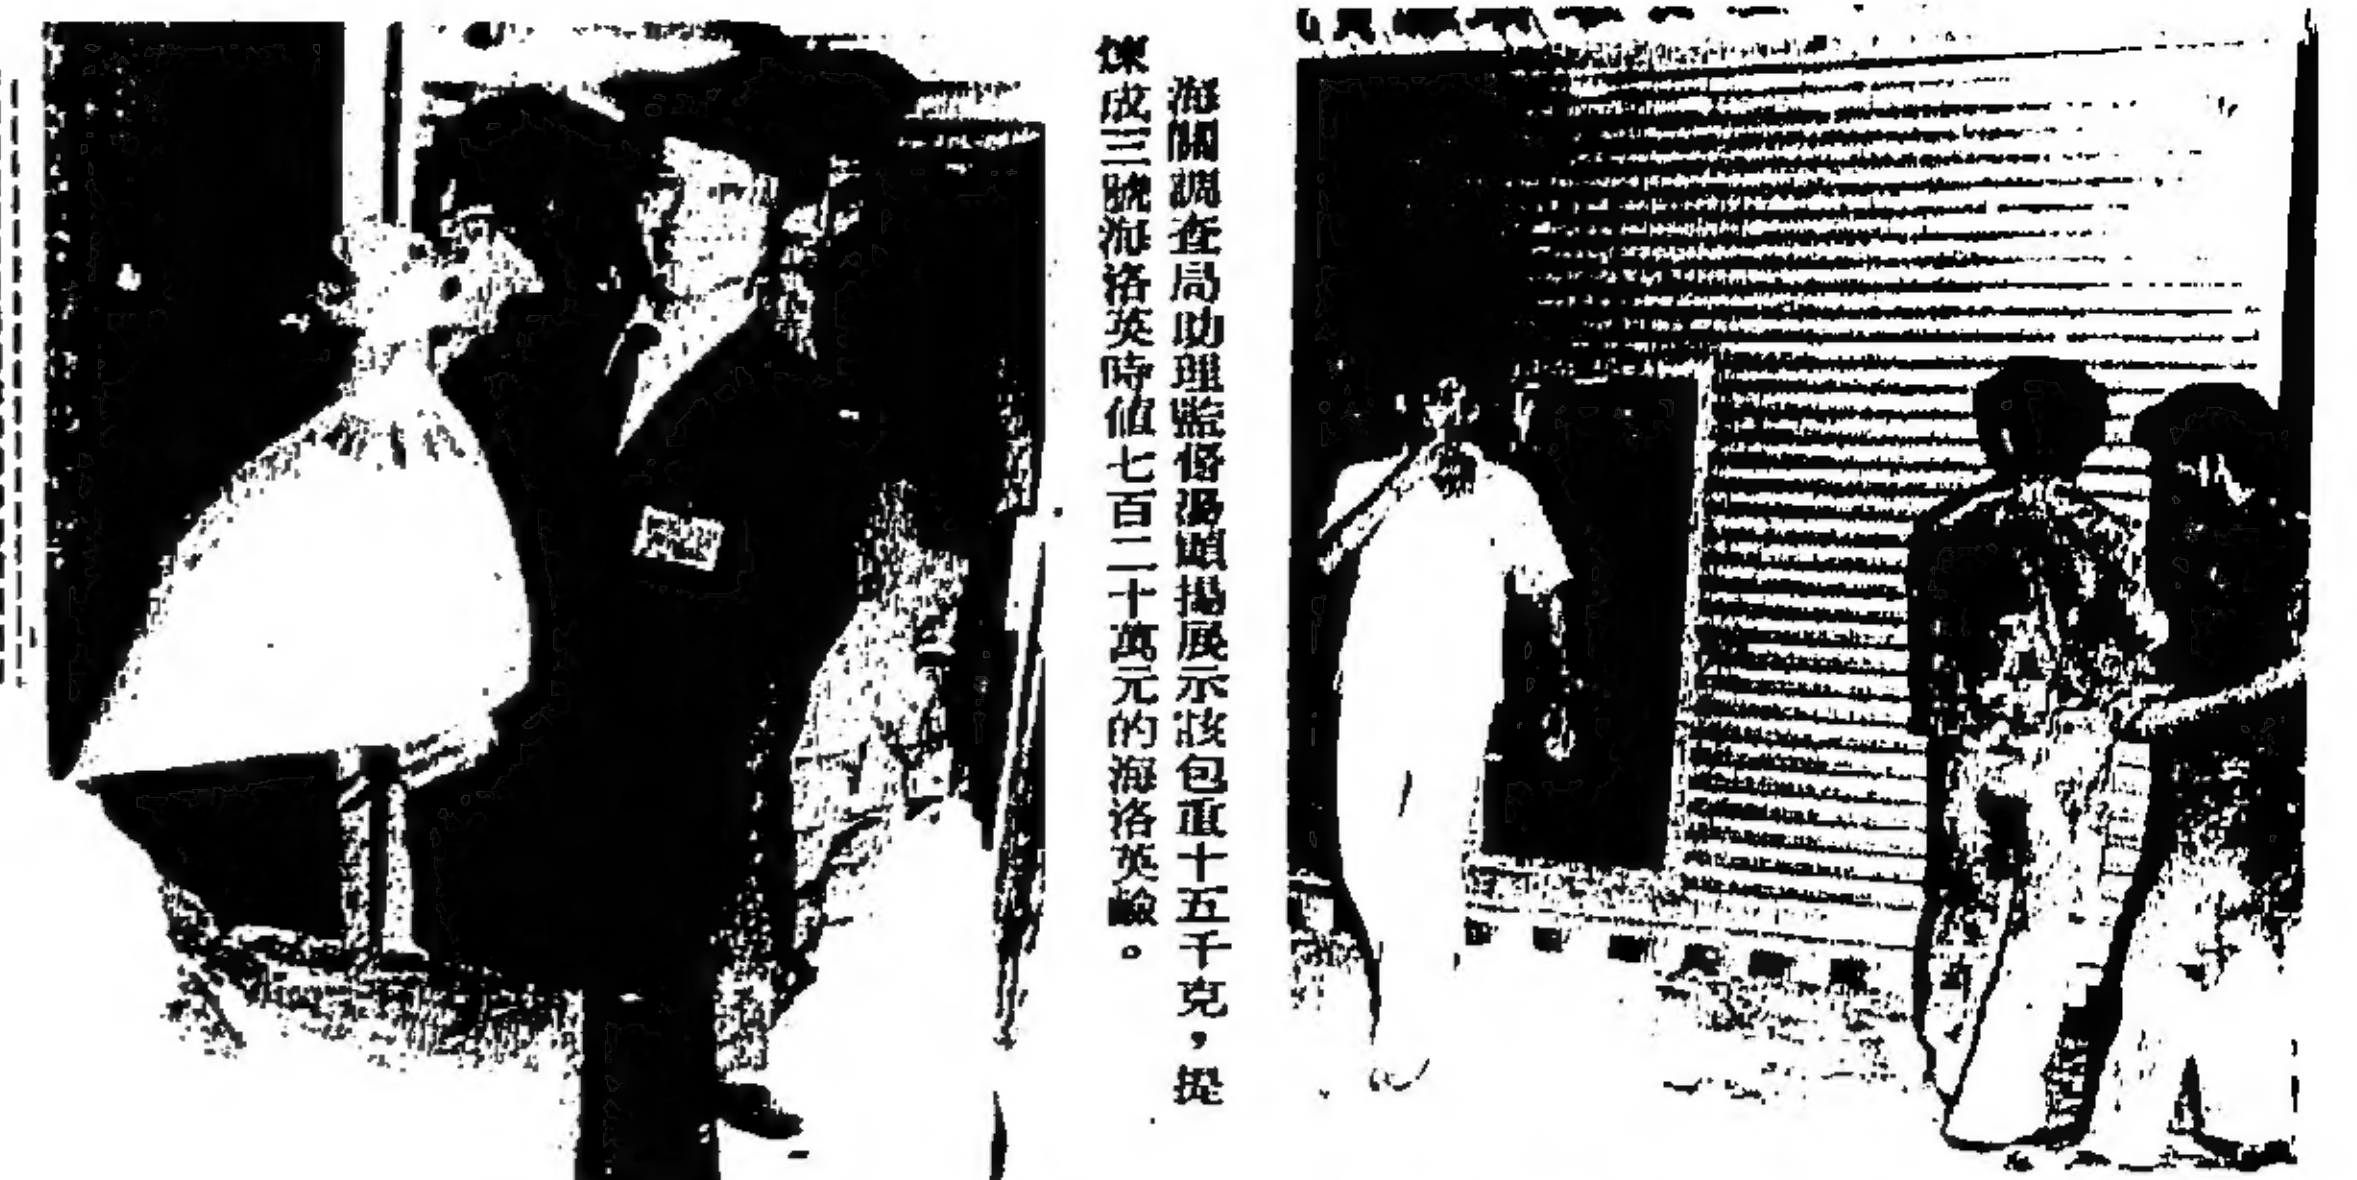 海關調查局助理監督湯顯揚展示該包重十五千克，提
煉成三號海洛英時値七百二十萬元的海洛英鹼。